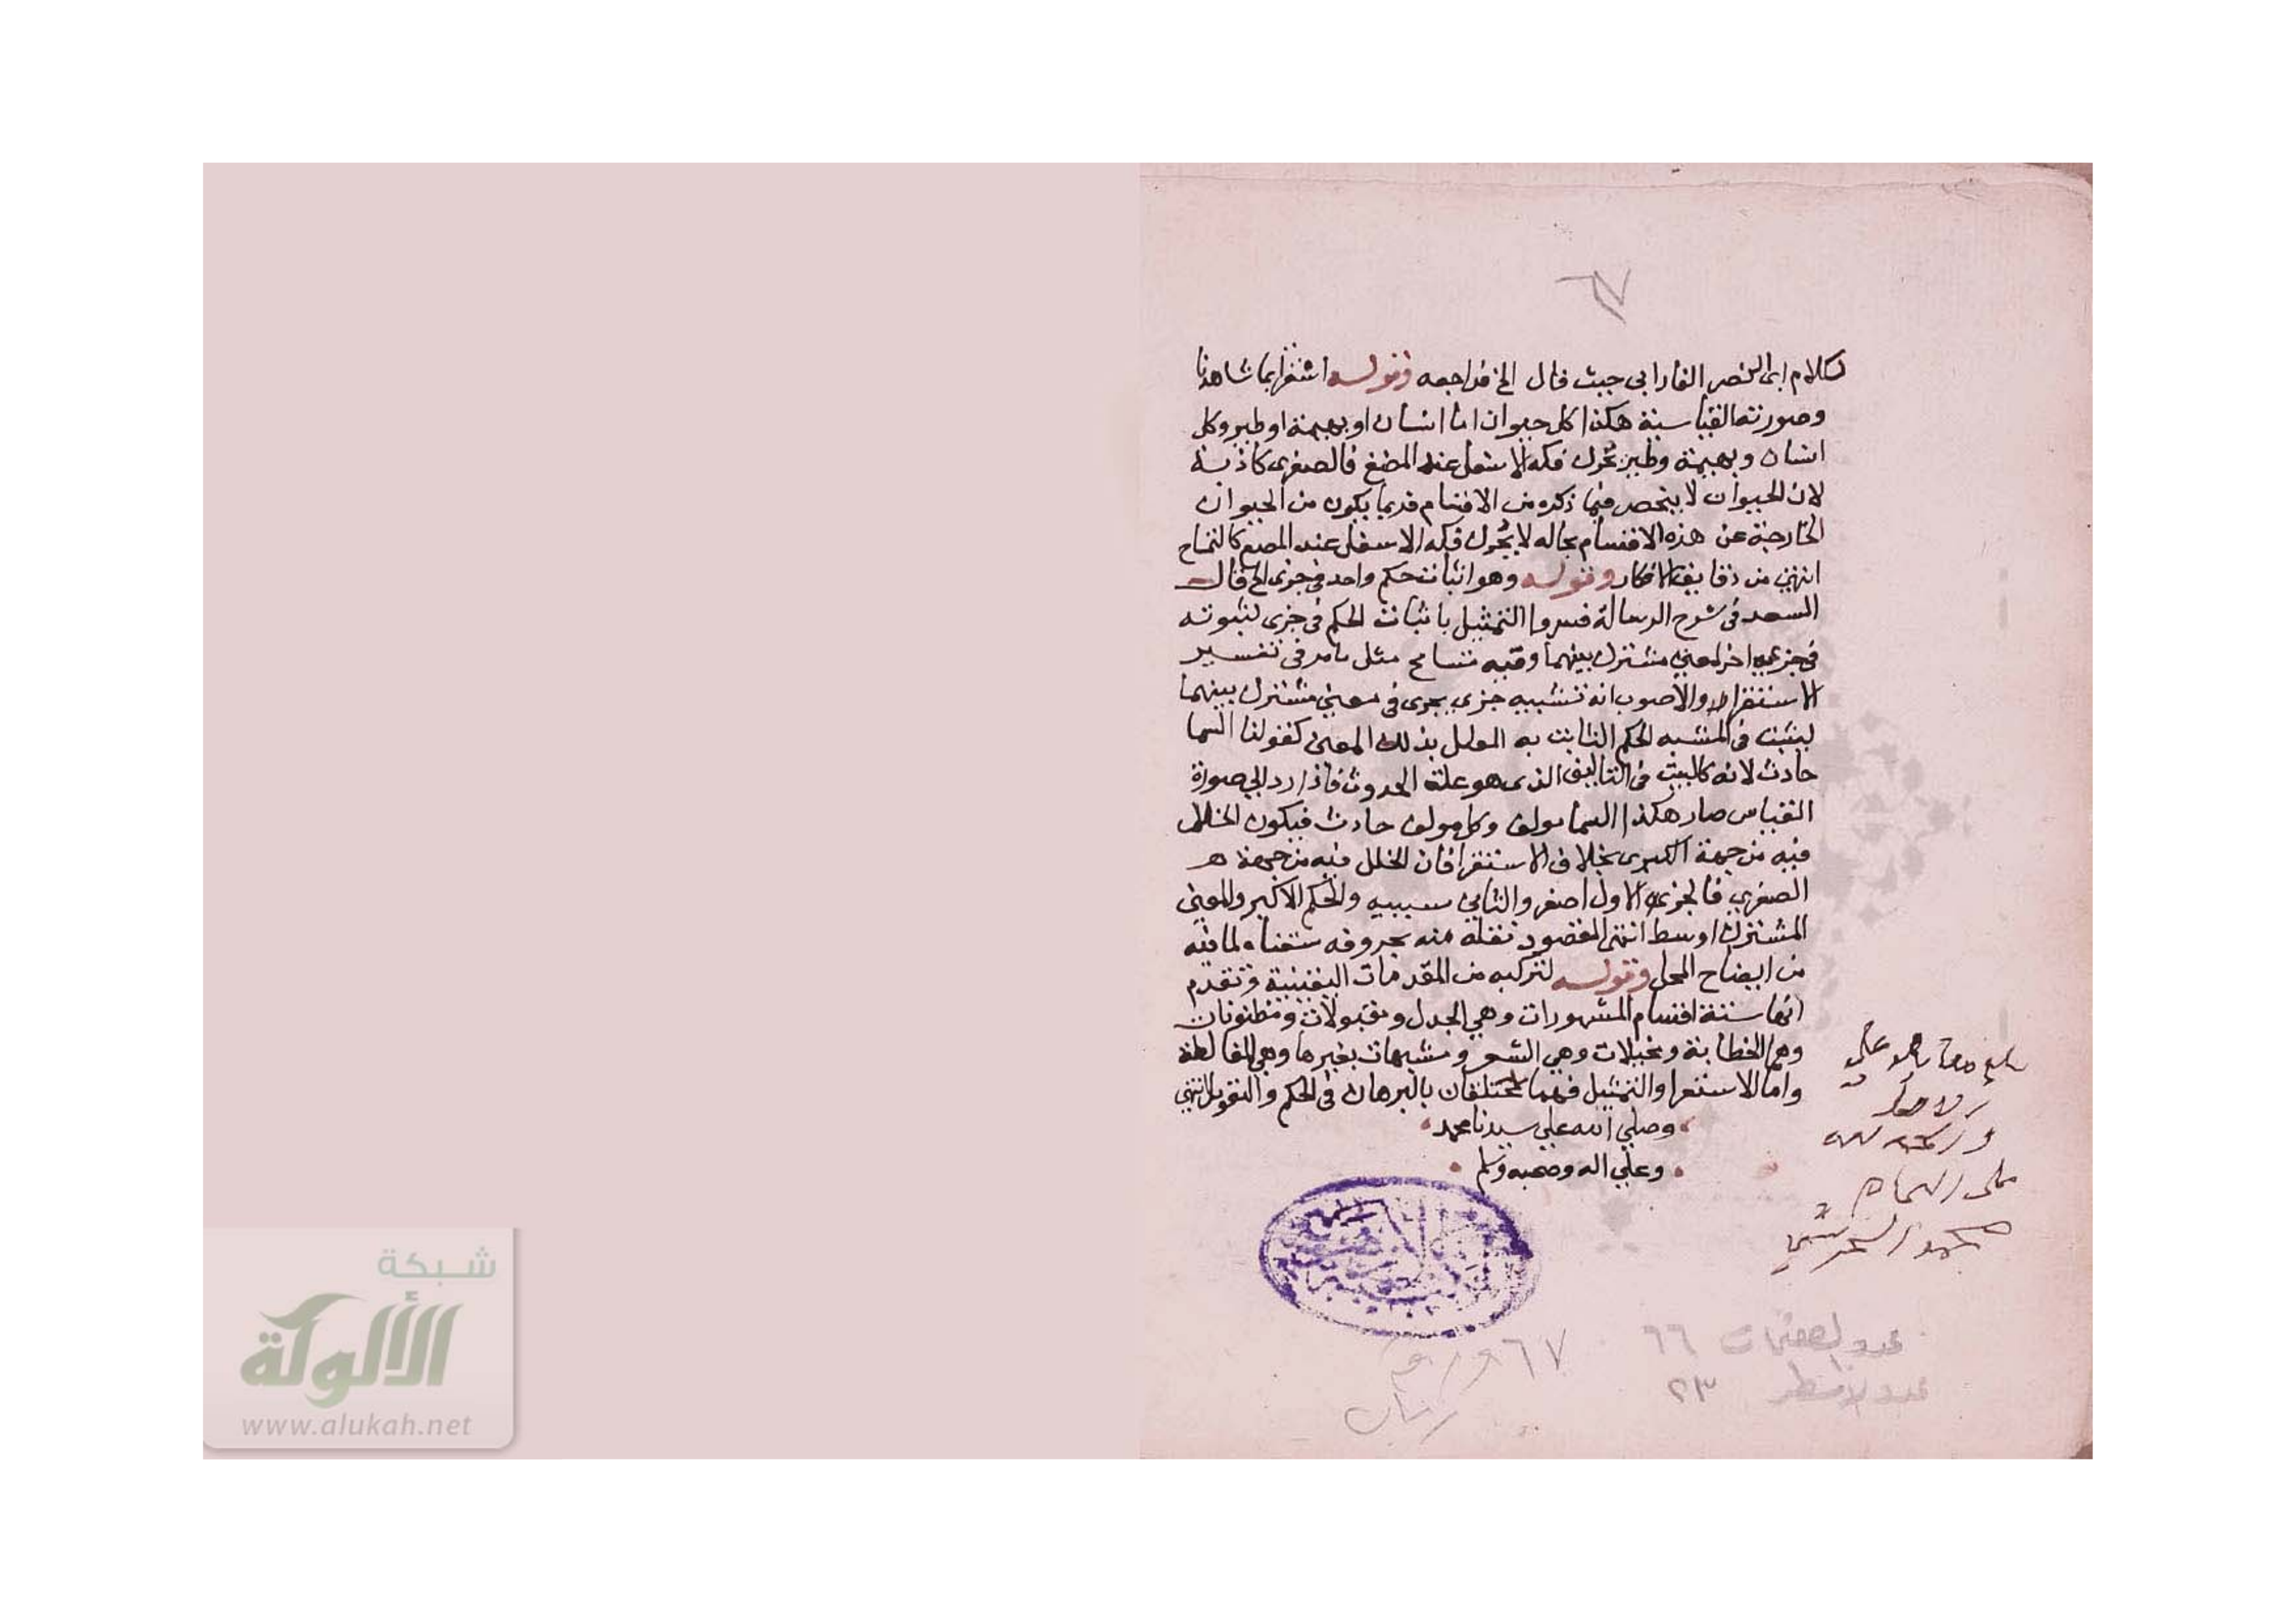 ٦٧
لكلام ابى النصر الفارابى حيث قال الخ فراجعه وقوله اشقرا بما شاهدنا
وصورته القياسية هكذا كل حيوان اما انسان او بهيمة او طير وكل
انسان وبهيمة وطير يحرك فكه الاسفل عند المضغ فالصغرى كاذبة
لان الحيوان لا ينحصر فيما ذكره من الاقسام فربما يكون من الحيوان
الخارجة عن هذه الاقسام بحاله لا يحرك فكه الاسفل عند المضغ كالتمساح
انتهى من دقايق الافكار وقوله وهو اثبات حكم واحد فى جزى الخ قال
السعد فى شرح الرسالة فسروا التمثيل باثبات الحكم فى جزى لثبوته
فى جزى اخر لمعنى مشترك بينهما وفيه تسامح مثل مامر فى تفسير
الاستقرا والاصوب انه تشبيه جزى بجزى فى معنى مشترك بينهما
ليثبت فى المشبه الحكم الثابت به المعلل بذلك المعنى كقولنا السما
حادث لانه كالبيت فى التاليف الذى هو علة الحدوث فاذا رد الى صورة
القياس صار هكذا السما مولف وكل مولف حادث فيكون الخلل
فيه من جهة الكبرى بخلاف الاستقرا فان الخلل فيه من جهة
الصغرى فالجزى الاول اصغر والثانى شبيه والحكم الاكبر والمعنى
المشترك اوسط انتهى المقصود نقله منه بحروفه سقناه لما فيه
من ايضاح المحل وقوله لتركبه من المقدمات اليقينية وتقدم
انها ستة اقسام المشهورات وهى الجدل ومقبولات ومظنونات
وهما الخطابة ومخيلات وهى الشعر ومشبهات بغيرها وهى المغالطة
واما الاستقرا والتمثيل فهما مختلفان بالبرهان فى الحكم والتقويل انتهى
وصلى الله على سيدنا محمد
وعلى اله وصحبه وسلم
بلغ مقابلة على
الاصل
محمد
عدد الصفحات ٦٦
عدد الاسطر ٢٣
٦٧ ورقه
شبكة
الألوكة
www.alukah.net